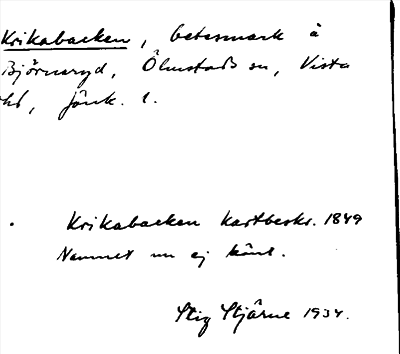 Krikabacken, betesmark å
Björnaryd, Ölmstads sn, Vista
hd, Jönk. l.
Krikabacken kartbeskr. 1849
Namnet nu ej känt.
Stig Stjärne 1934.